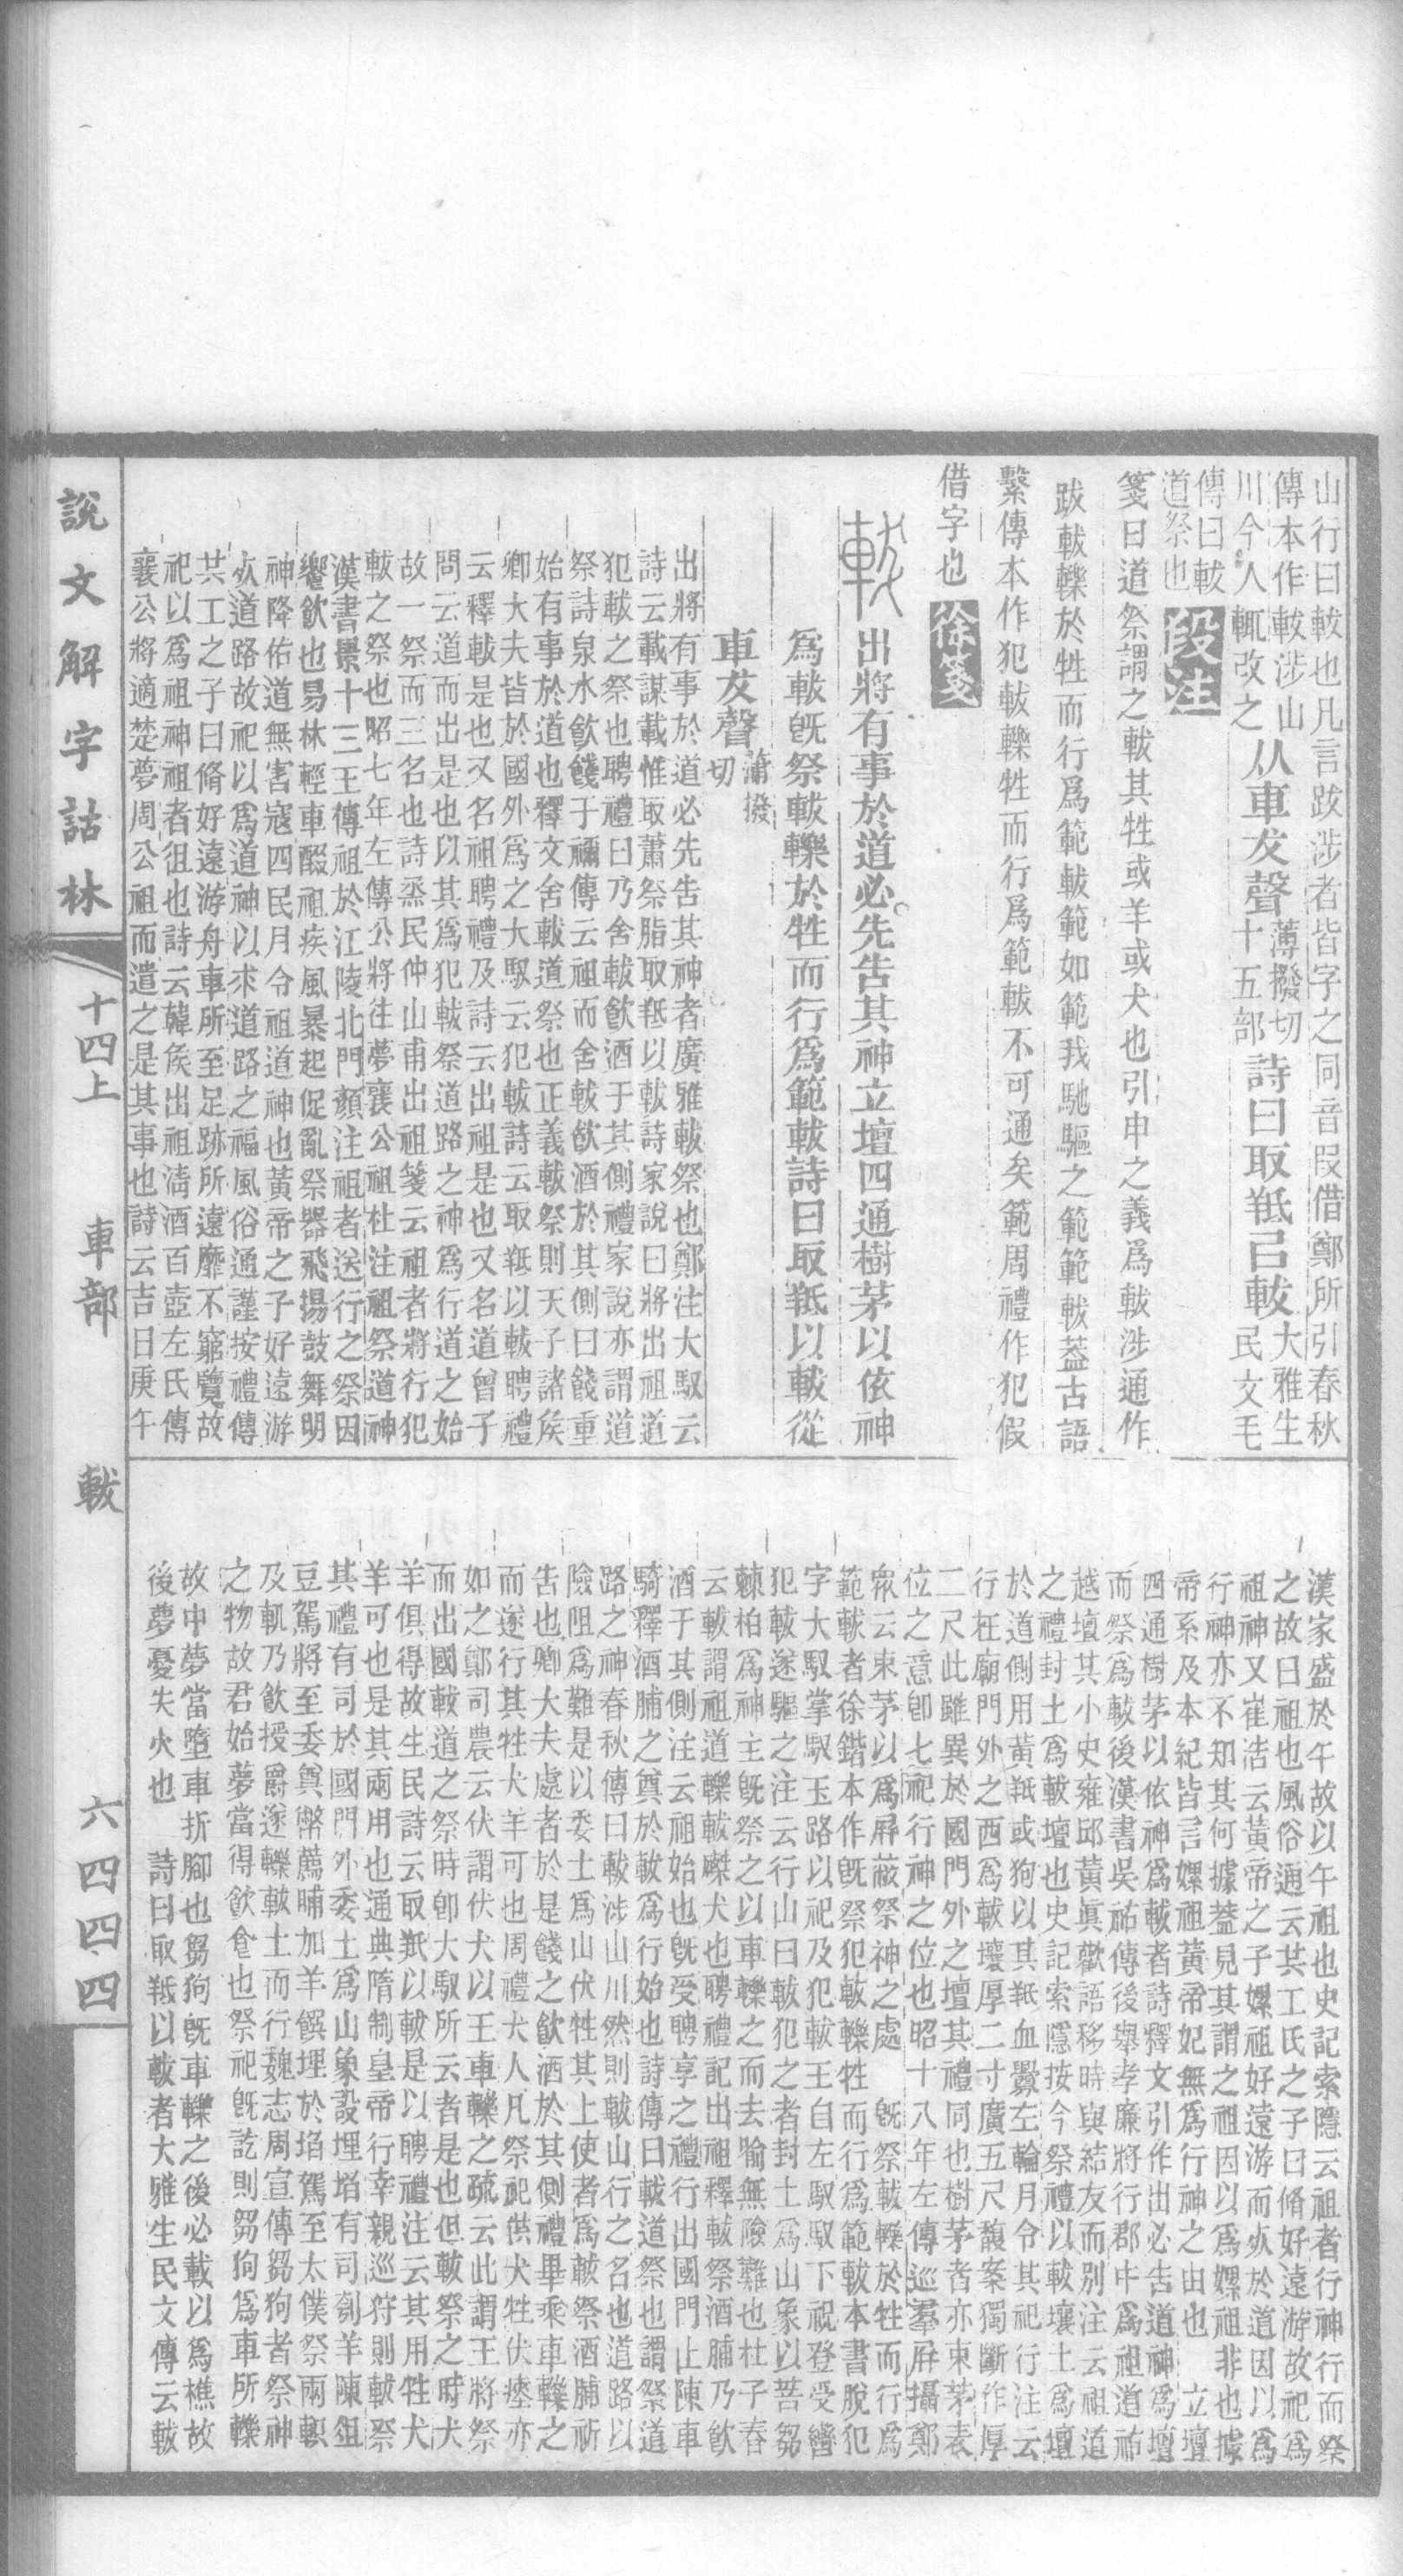 山行曰軷也凡言跋涉者皆字之同音叚借鄭所引春秋
傳本作軷涉山
川今人輒改之
从車犮聲
薄撥切
十五部
詩曰取羝㠯軷
大雅生
民文毛
傳曰軷
道祭也
段注
箋曰道祭謂之軷其牲或羊或犬也引申之義爲軷涉通作
跋軷轢於牲而行爲範軷範如範我馳驅之範範軷葢古語
繫傳本作犯軷轢牲而行爲範軷不可通矣範周禮作犯假
借字也
徐箋
出將有事於道必先告其神立壇四通樹茅以依神
爲軷旣祭軷轢於牲而行爲範軷詩曰取羝以軷從
車犮聲
蒲撥
切
出將有事於道必先告其神者廣雅軷祭也鄭注大馭云
詩云載謀載惟取蕭祭脂取羝以軷詩家說曰將出祖道
犯軷之祭也聘禮曰乃舍軷飮酒于其側禮家說亦謂道
祭詩泉水飮餞于禰傳云祖而舍軷飮酒於其側曰餞重
始有事於道也釋文舍軷道祭也正義軷祭則天子諸矦
卿大夫皆於國外爲之大馭云犯軷詩云取羝以軷聘禮
云釋軷是也又名祖聘禮及詩云出祖是也又名道曾子
問云道而出是也以其爲犯軷祭道路之神爲行道之始
故一祭而三名也詩烝民仲山甫出祖箋云祖者將行犯
軷之祭也昭七年左傳公將往夢襄公祖杜注祖祭道神
漢書景十三王傳祖於江陵北門顏注祖者送行之祭因
饗飮也易林輕車醊祖疾風暴起促亂祭器飛揚鼓舞明
神降佑道無害寇四民月令祖道神也黃帝之子好遠游
死道路故祀以爲道神以求道路之福風俗通謹按禮傳
共工之子曰脩好遠游舟車所至足跡所遠靡不窮覽故
祀以爲祖神祖者徂也詩云韓矦出祖淸酒百壺左氏傳
襄公將適楚夢周公祖而遣之是其事也詩云吉日庚午
漢家盛於午故以午祖也史記索隱云祖者行神行而祭
之故曰祖也風俗通云共工氏之子曰脩好遠游故祀爲
祖神又崔浩云黃帝之子嫘祖好遠游而死於道因以爲
行神亦不知其何據葢見其謂之祖因以爲嫘祖非也據
帝系及本紀皆言嫘祖黃帝妃無爲行神之由也　立壇
四通樹茅以依神爲軷者詩釋文引作出必告道神爲壇
而祭爲軷後漢書吳祐傳後舉孝廉將行郡中爲祖道祐
越壇共小史雍邱黃眞歡語移時與結友而別注云祖道
之禮封土爲軷壇也史記索隱按今祭禮以軷壤土爲壇
於道側用黃羝或狗以其羝血釁左輪月令其祀行注云
行在廟門外之西爲軷壤厚二寸廣五尺馥案獨斷作厚
二尺此雖異於國門外之壇其禮同也樹茅者亦束茅表
位之意卽七祀行神之位也昭十八年左傳巡羣屏攝鄭
眾云束茅以爲屏蔽祭神之處　旣祭軷轢於牲而行爲
範軷者徐鍇本作旣祭犯軷轢牲而行爲範軷本書脫犯
字大馭掌馭玉路以祀及犯軷王自左馭馭下祝登受轡
犯軷遂驅之注云行山曰軷犯之者封土爲山象以菩芻
棘柏爲神主旣祭之以車轢之而去喻無險難也杜子春
云軷謂祖道轢軷磔犬也聘禮記出祖釋軷祭酒脯乃飮
酒于其側注云祖始也旣受聘享之禮行出國門止陳車
騎釋酒脯之奠於軷爲行始也詩傳曰軷道祭也謂祭道
路之神春秋傳曰軷涉山川然則軷山行之名也道路以
險阻爲難是以委土爲山伏牲其上使者爲軷祭酒脯祈
告也卿大夫處者於是餞之飮酒於其側禮畢乘車轢之
而遂行其牲犬羊可也周禮犬人凡祭祀供犬牲伏瘞亦
如之鄭司農云伏謂伏犬以王車轢之疏云此謂王將祭
而出國軷道之祭時卽大馭所云者是也但軷祭之時犬
羊俱得故生民詩云取羝以軷是以聘禮注云其用牲犬
羊可也是其兩用也通典隋制皇帝行幸親巡狩則軷祭
其禮有司於國門外委土爲山象設埋埳有司刳羊陳俎
豆駕將至委奠幣薦脯加羊饌埋於埳駕至太僕祭兩軹
及軓乃飮授爵遂轢軷土而行魏志周宣傳芻狗者祭神
之物故君始夢當得飮食也祭祀旣訖則芻狗爲車所轢
故中夢當墮車折腳也芻狗旣車轢之後必載以爲樵故
後夢憂失火也　詩曰取羝以軷者大雅生民文傳云軷
說文解字詁林
十四上
車部
軷
六四四四